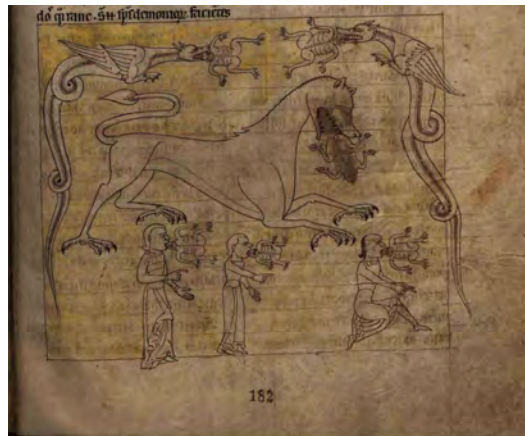 dō q̄ rane. Sūt sp̄s demonioꝝ faciētes
182